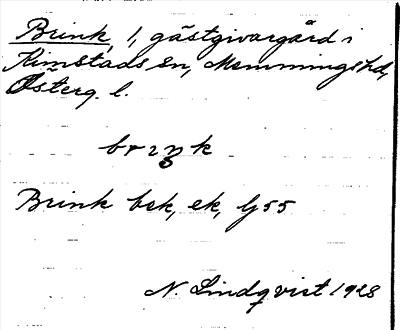 Brink, 1, gästgivargård i
Rimstads sn, Memmings hd,
Österg. l.
brink
Brink bek, ek, lj 55
N. Lindqvist 1928